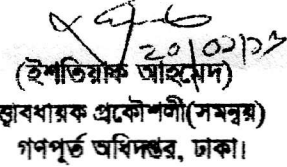 ২০/০১/১৩
(ইশতিয়াক আহমেদ)
ত্বাবধায়ক প্রকৌশলী(সমন্বয়)
গণপূর্ত অধিদপ্তর, ঢাকা।